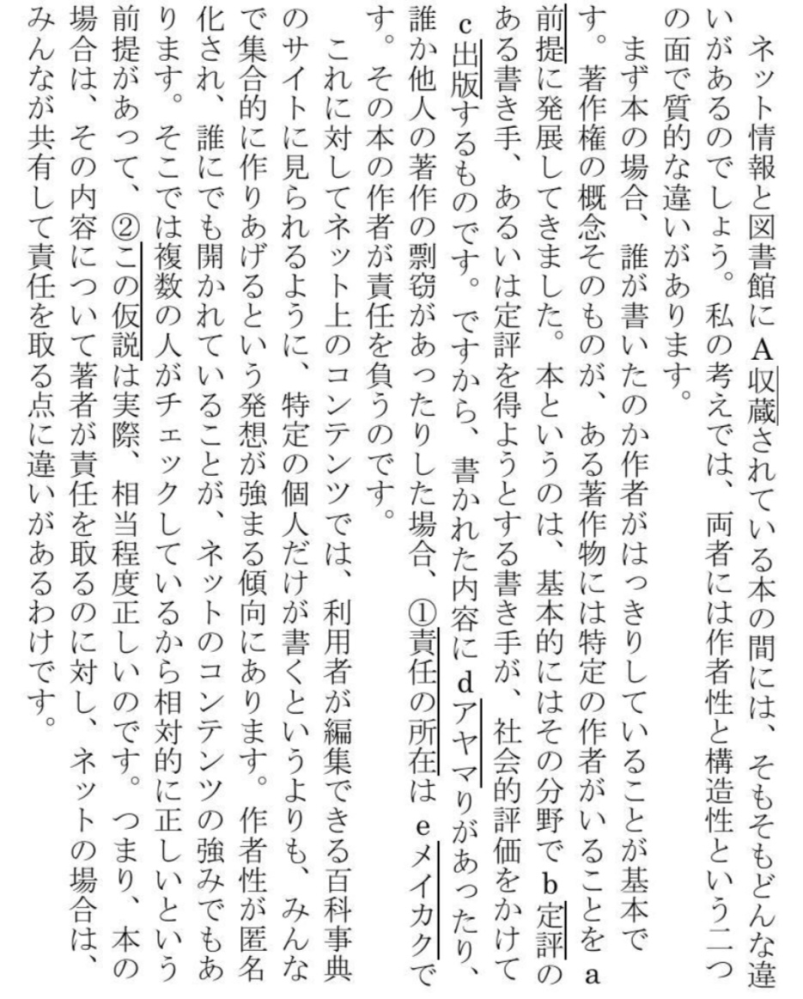 ネット情報と図書館にA収蔵されている本の間には、そもそもどんな違
いがあるのでしょう。私の考えでは、両者には作者性と構造性という二つ
の面で質的な違いがあります。
　まず本の場合、誰が書いたのか作者がはっきりしていることが基本で
す。著作権の概念そのものが、ある著作物には特定の作者がいることをa
前提に発展してきました。本というのは、基本的にはその分野でb定評の
ある書き手、あるいは定評を得ようとする書き手が、社会的評価をかけて
c出版するものです。ですから、書かれた内容にdアヤマりがあったり、
誰か他人の著作の剽窃があったりした場合、①責任の所在はeメイカクで
す。その本の作者が責任を負うのです。
　これに対してネット上のコンテンツでは、利用者が編集できる百科事典
のサイトに見られるように、特定の個人だけが書くというよりも、みんな
で集合的に作りあげるという発想が強まる傾向にあります。作者性が匿名
化され、誰にでも開かれていることが、ネットのコンテンツの強みでもあ
ります。そこでは複数の人がチェックしているから相対的に正しいという
前提があって、②この仮説は実際、相当程度正しいのです。つまり、本の
場合は、その内容について著者が責任を取るのに対し、ネットの場合は、
みんなが共有して責任を取る点に違いがあるわけです。